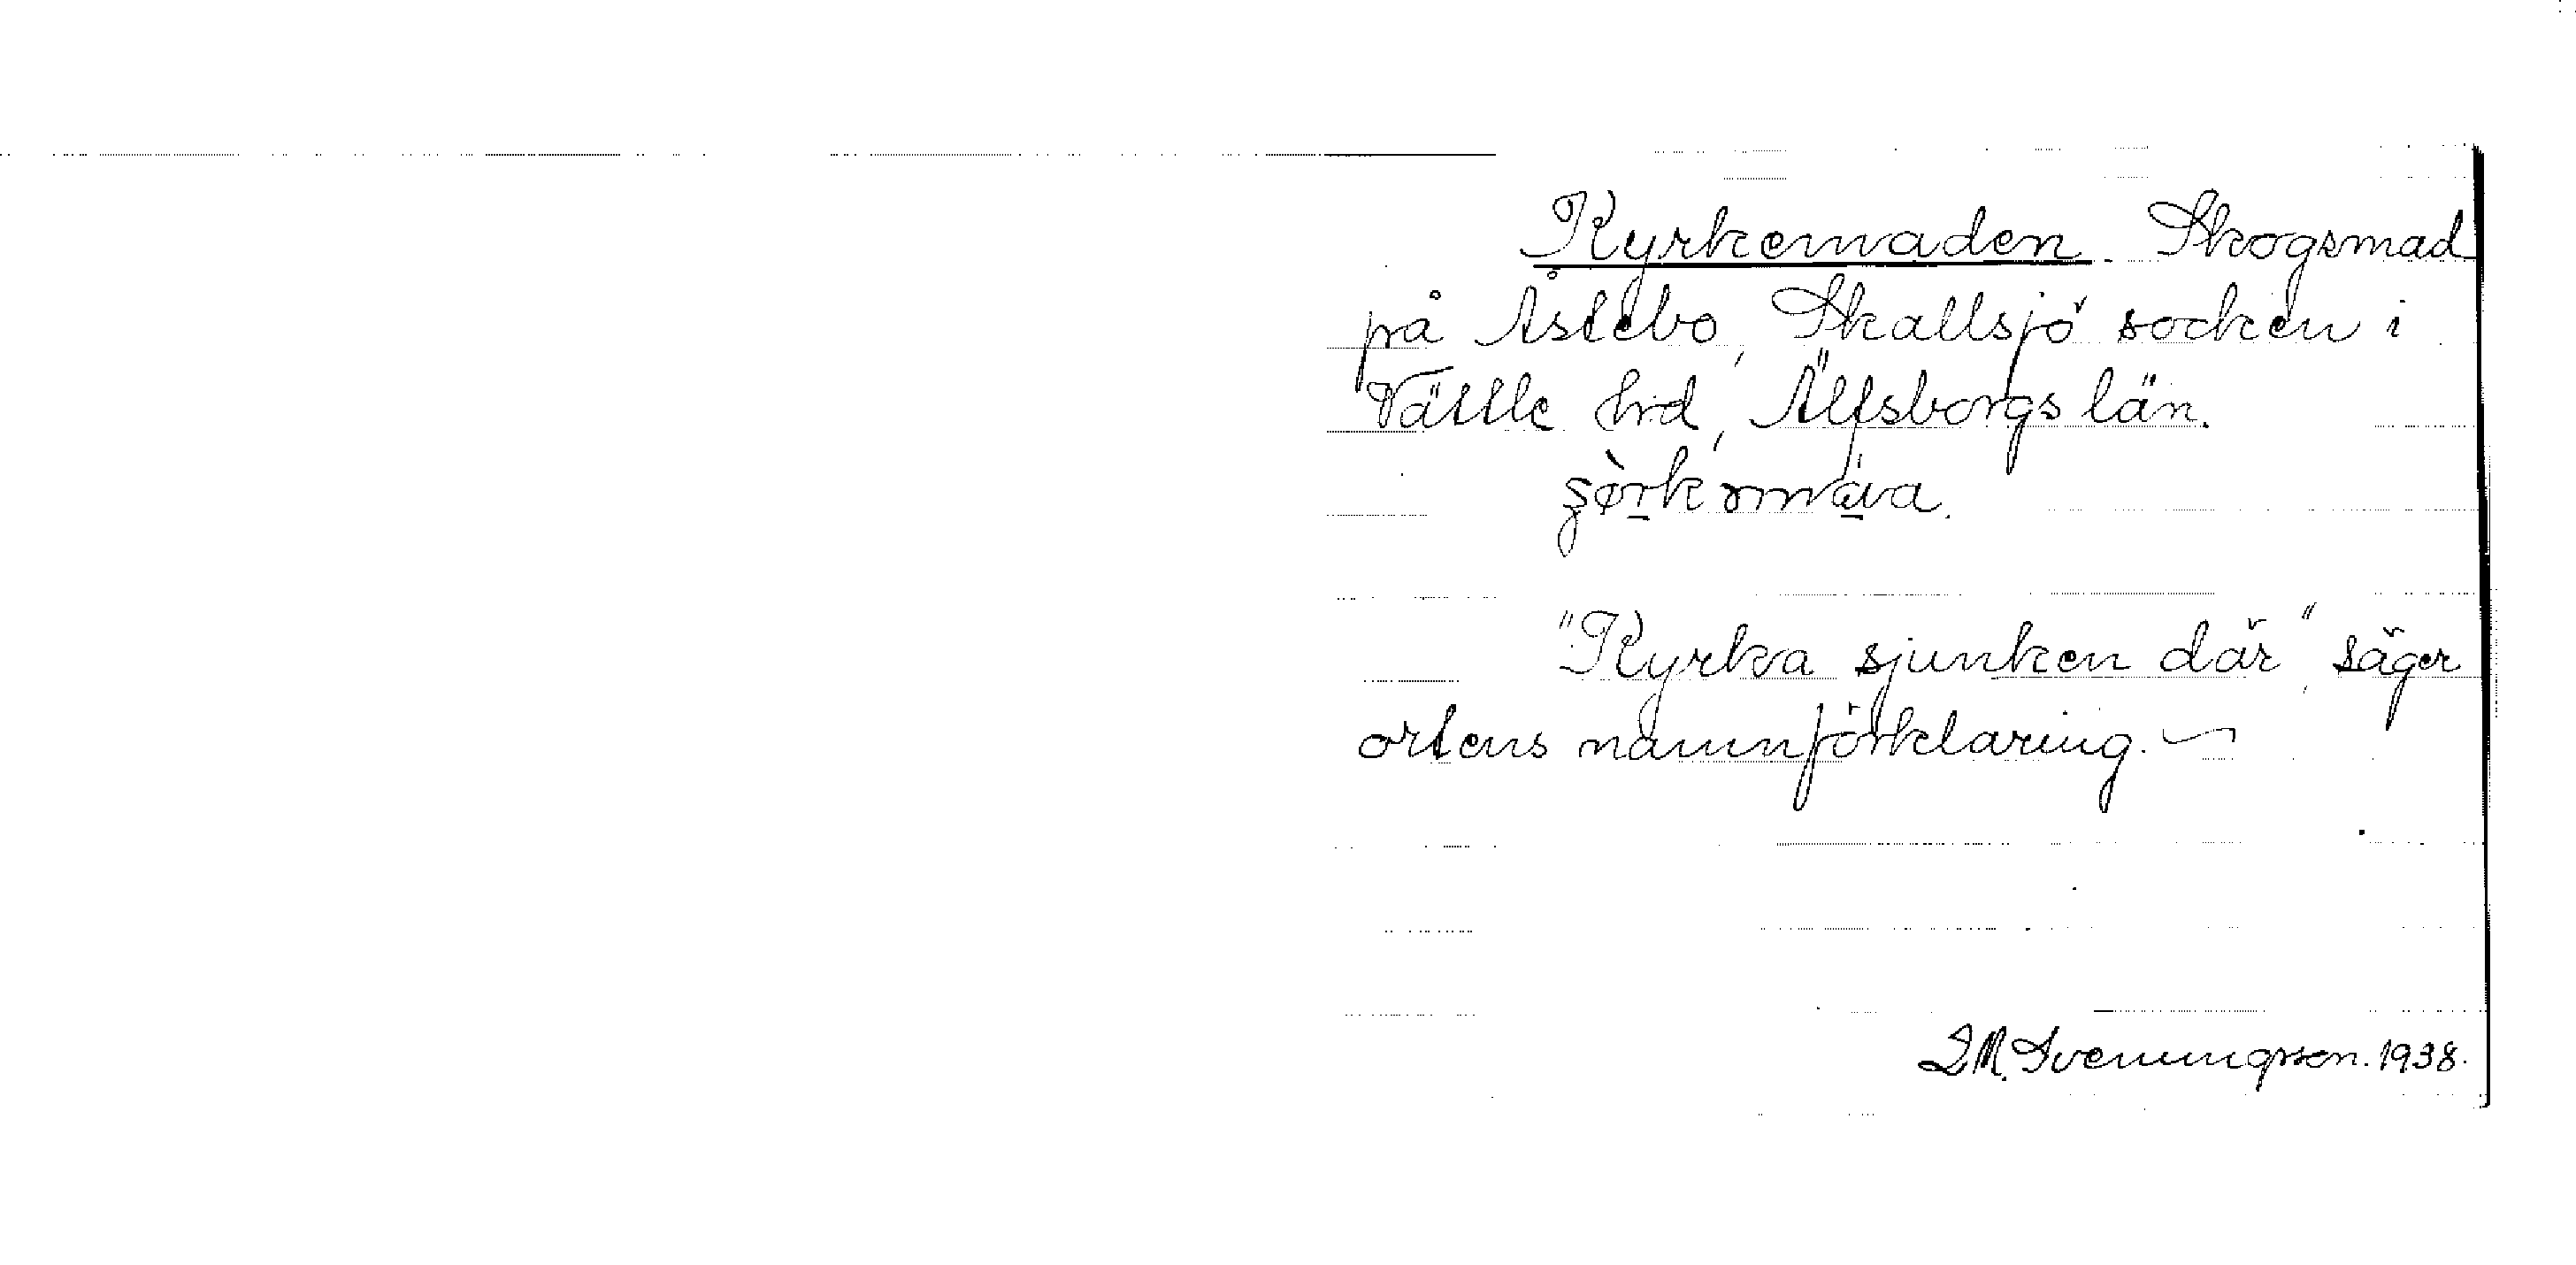 Kyrkemaden. Skogsmad
på Åslebo, Skallsjö socken i
Vättle hrd, Älfsborgs län.
"Kyrka sjunken där", säger
ortens namnförklaring.
S.M. Svenungsson. 1938.